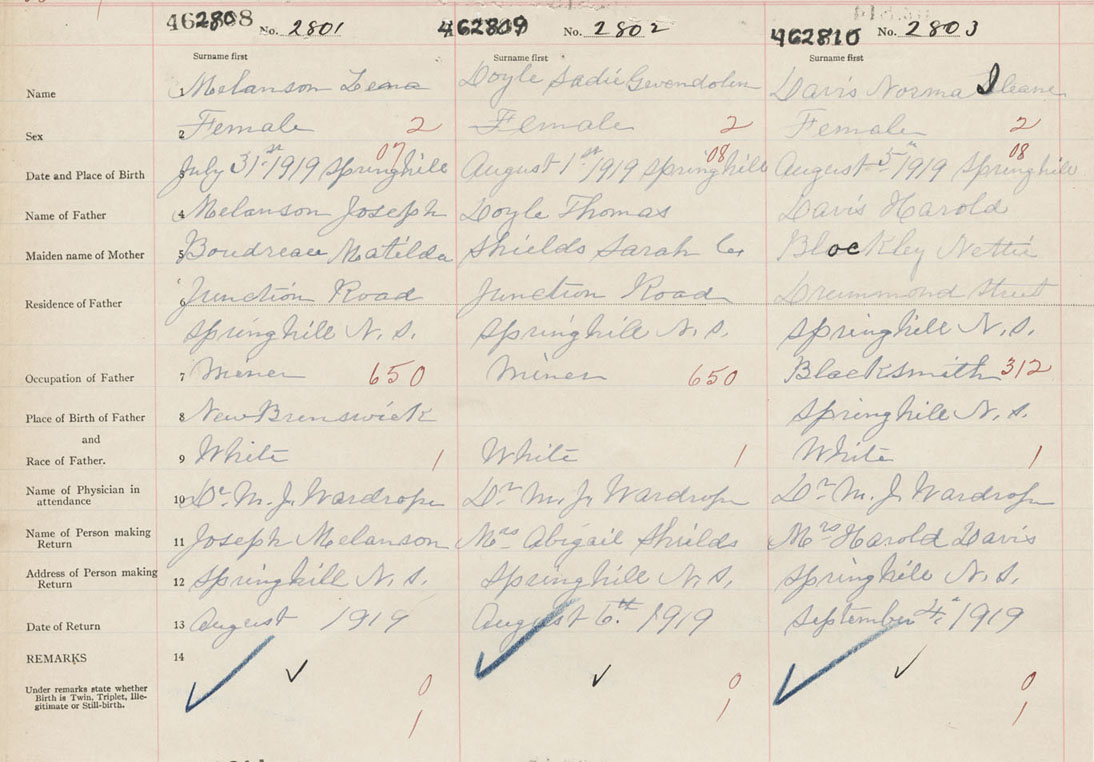 462808 No. 2801 462809 No. 2802 462810 No. 2803
Surname first Surname first Surname first
Name 1 Melanson Lena Doyle Sadie Gwendolen Davis Norma Ileane
Sex 2 Female 2 Female 2 Female 2
07 08 08
Date and Place of Birth 3 July 31st 1919 Springhill August 1st 1919 Springhill August 5th 1919 Springhill
Name of Father 4 Melanson Joseph Doyle Thomas Davis Harold
Maiden name of Mother 5 Boudreau Matilda Shields Sarah Blockley Nettie
Residence of Father 6 Junction Road Junction Road Drummond Street
Springhill N.S. Springhill N.S. Springhill N.S.
Occupation of Father 7 Miner 650 Miner 650 Blacksmith 312
Place of Birth of Father 8 New Brunswick Springhill N.S.
and
Race of Father. 9 White 1 White 1 White 1
Name of Physician in
attendance 10 Dr M. J. Wardrope Dr M. J. Wardrope Dr M. J. Wardrope
Name of Person making
Return 11 Joseph Melanson Mrs Abigail Shields Mrs Harold Davis
Address of Person making
Return 12 Springhill N.S. Springhill N.S. Springhill N.S.
Date of Return 13 August 1919 August 6th 1919 September 4th 1919
REMARKS 14
Under remarks state whether
Birth is Twin, Triplet, Ille-
gitimate or Still-birth.
0 0 0
1 1 1